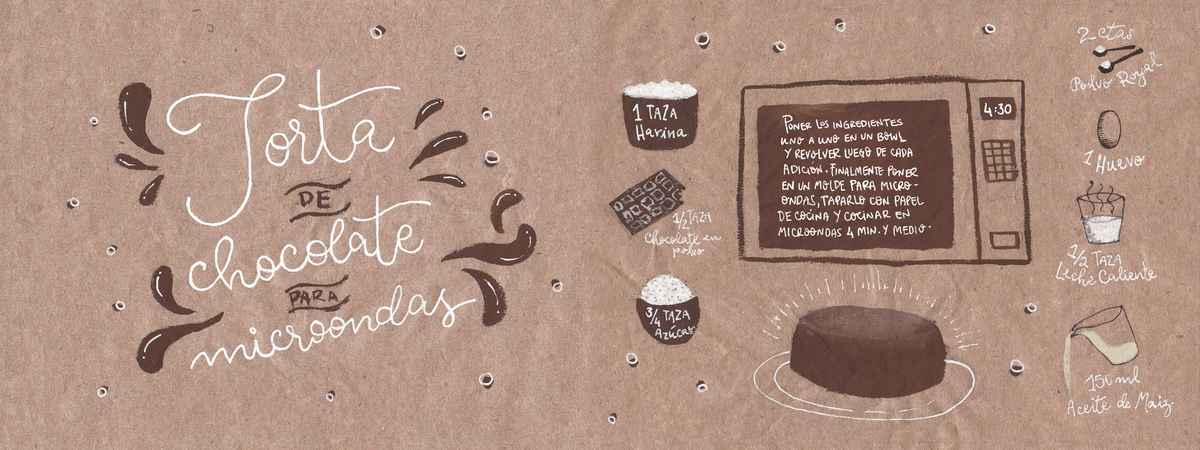 Torta
DE
chocolate
PARA
microondas
1 TAZA
Harina
1/2 TAZA
chocolate en
polvo
3/4 TAZA
Azúcar
PONER LOS INGREDIENTES
UNO A UNO EN UN BOWL
Y REVOLVER LUEGO DE CADA
ADICIÓN. FINALMENTE PONER
EN UN MOLDE PARA MICRO-
ONDAS, TAPARLO CON PAPEL
DE COCINA Y COCINAR EN
MICROONDAS 4 MIN. Y MEDIO.
4:30
2 ctas
Polvo Royal
1 Huevo
1/2 TAZA
Leche Caliente
150 ml
Aceite de Maiz